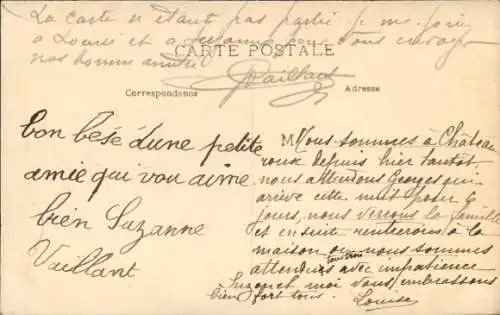 La carte n'étant pas partie je me joins
a Louise et a Suzanne pour vous envoyer
nos bonne amitié
CARTE POSTALE
Vaillant
Correspondance
Adresse
bon besé d'une petite
amie qui vou aime
bien Suzanne
Vaillant
M
Nous sommes à Château
roux depuis hier tantôt
nous attendons Georges qui
arrive cette nuit pour 6
jours, nous verrons la famille
et en suite rentrerons à la
maison ou nous sommes
attendues tous trois avec impatience
Suzon et moi vous embrassons
bien fort tous. Louise